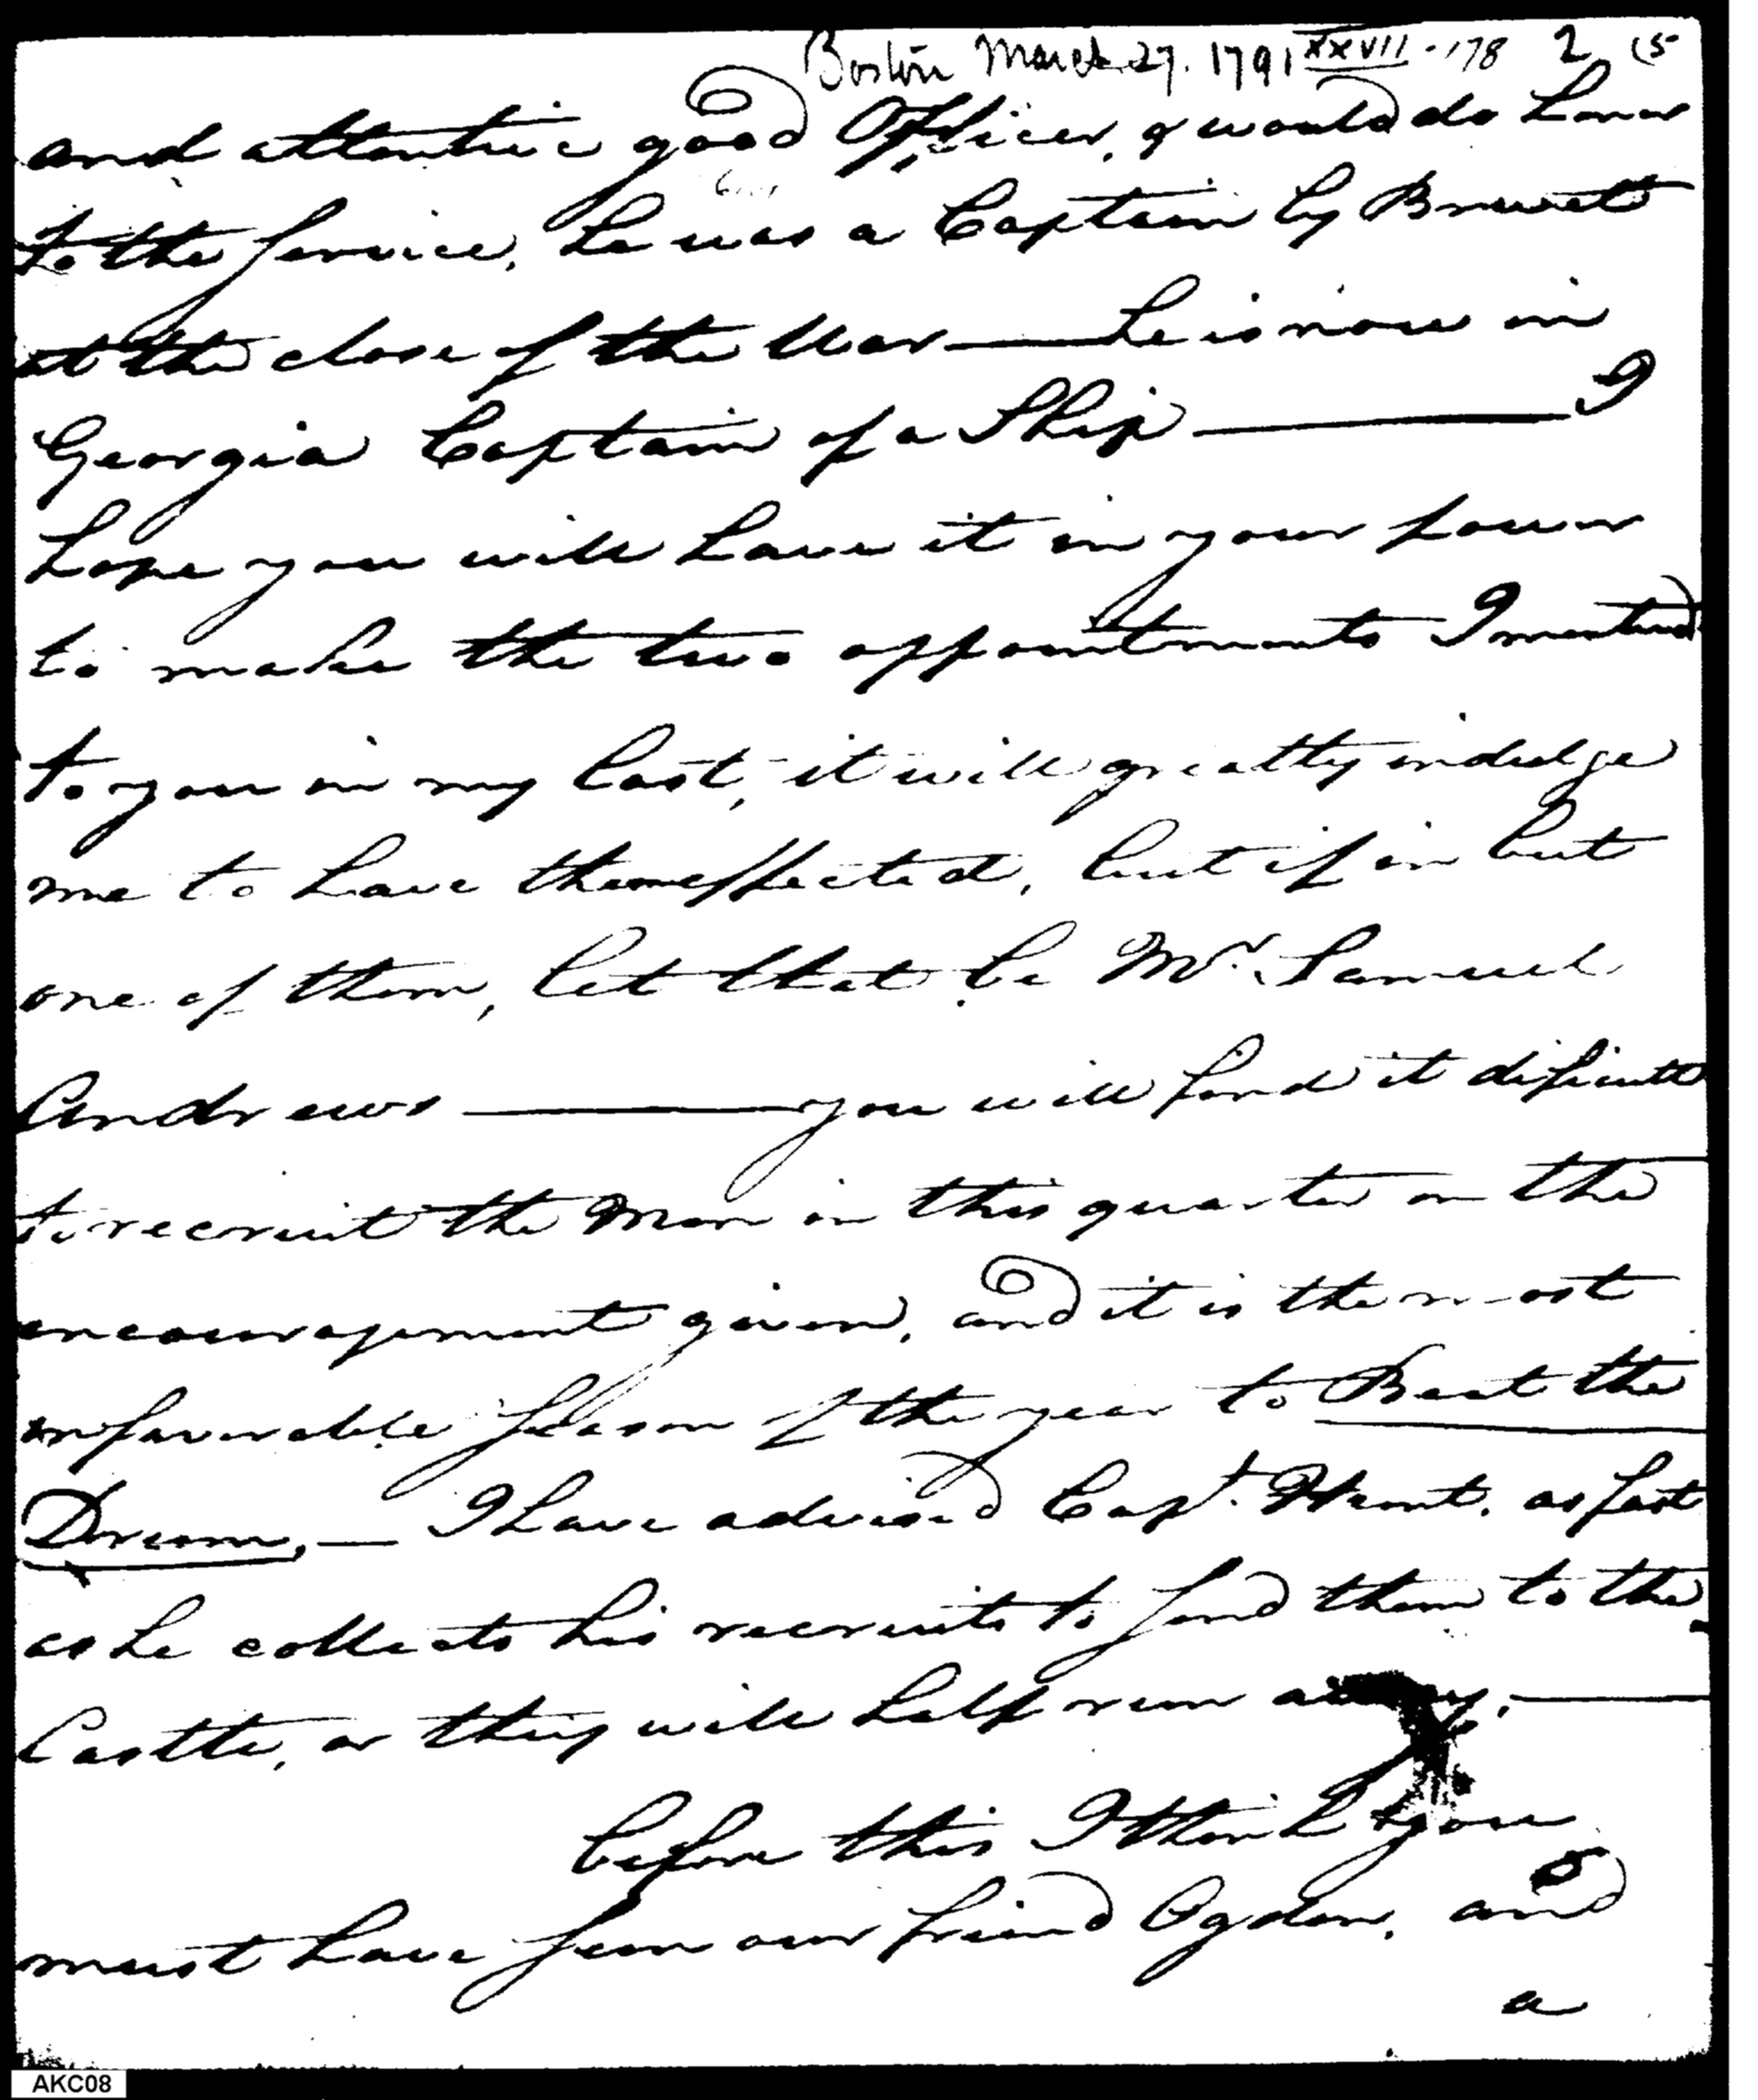 Boston March 27. 1791 XXVII-178 2 (5
and attentive good Officer, & would do honor
to the Service, he was a Captain by Brevet
at the close of the War — he is now in
Georgia Captain of a Ship — I
hope you will have it in your power
to make the two appointments I mentiond
to you in my last, it will greatly indulge
me to have them effected, but if in but
one of them, let that be Mr. Samuel
Andrews — you will find it dificult
to recruit the Men in this quarter on the
encouragement given, and it is the most
unfavorable Season of the year to Beat the
Drum, — I have advised Capt. Hunt, as fast
as he collects his recruits to send them to the
Castle, or they will half run away, —
before this I think you
must have seen our friend Ogden, and
a
AKC08